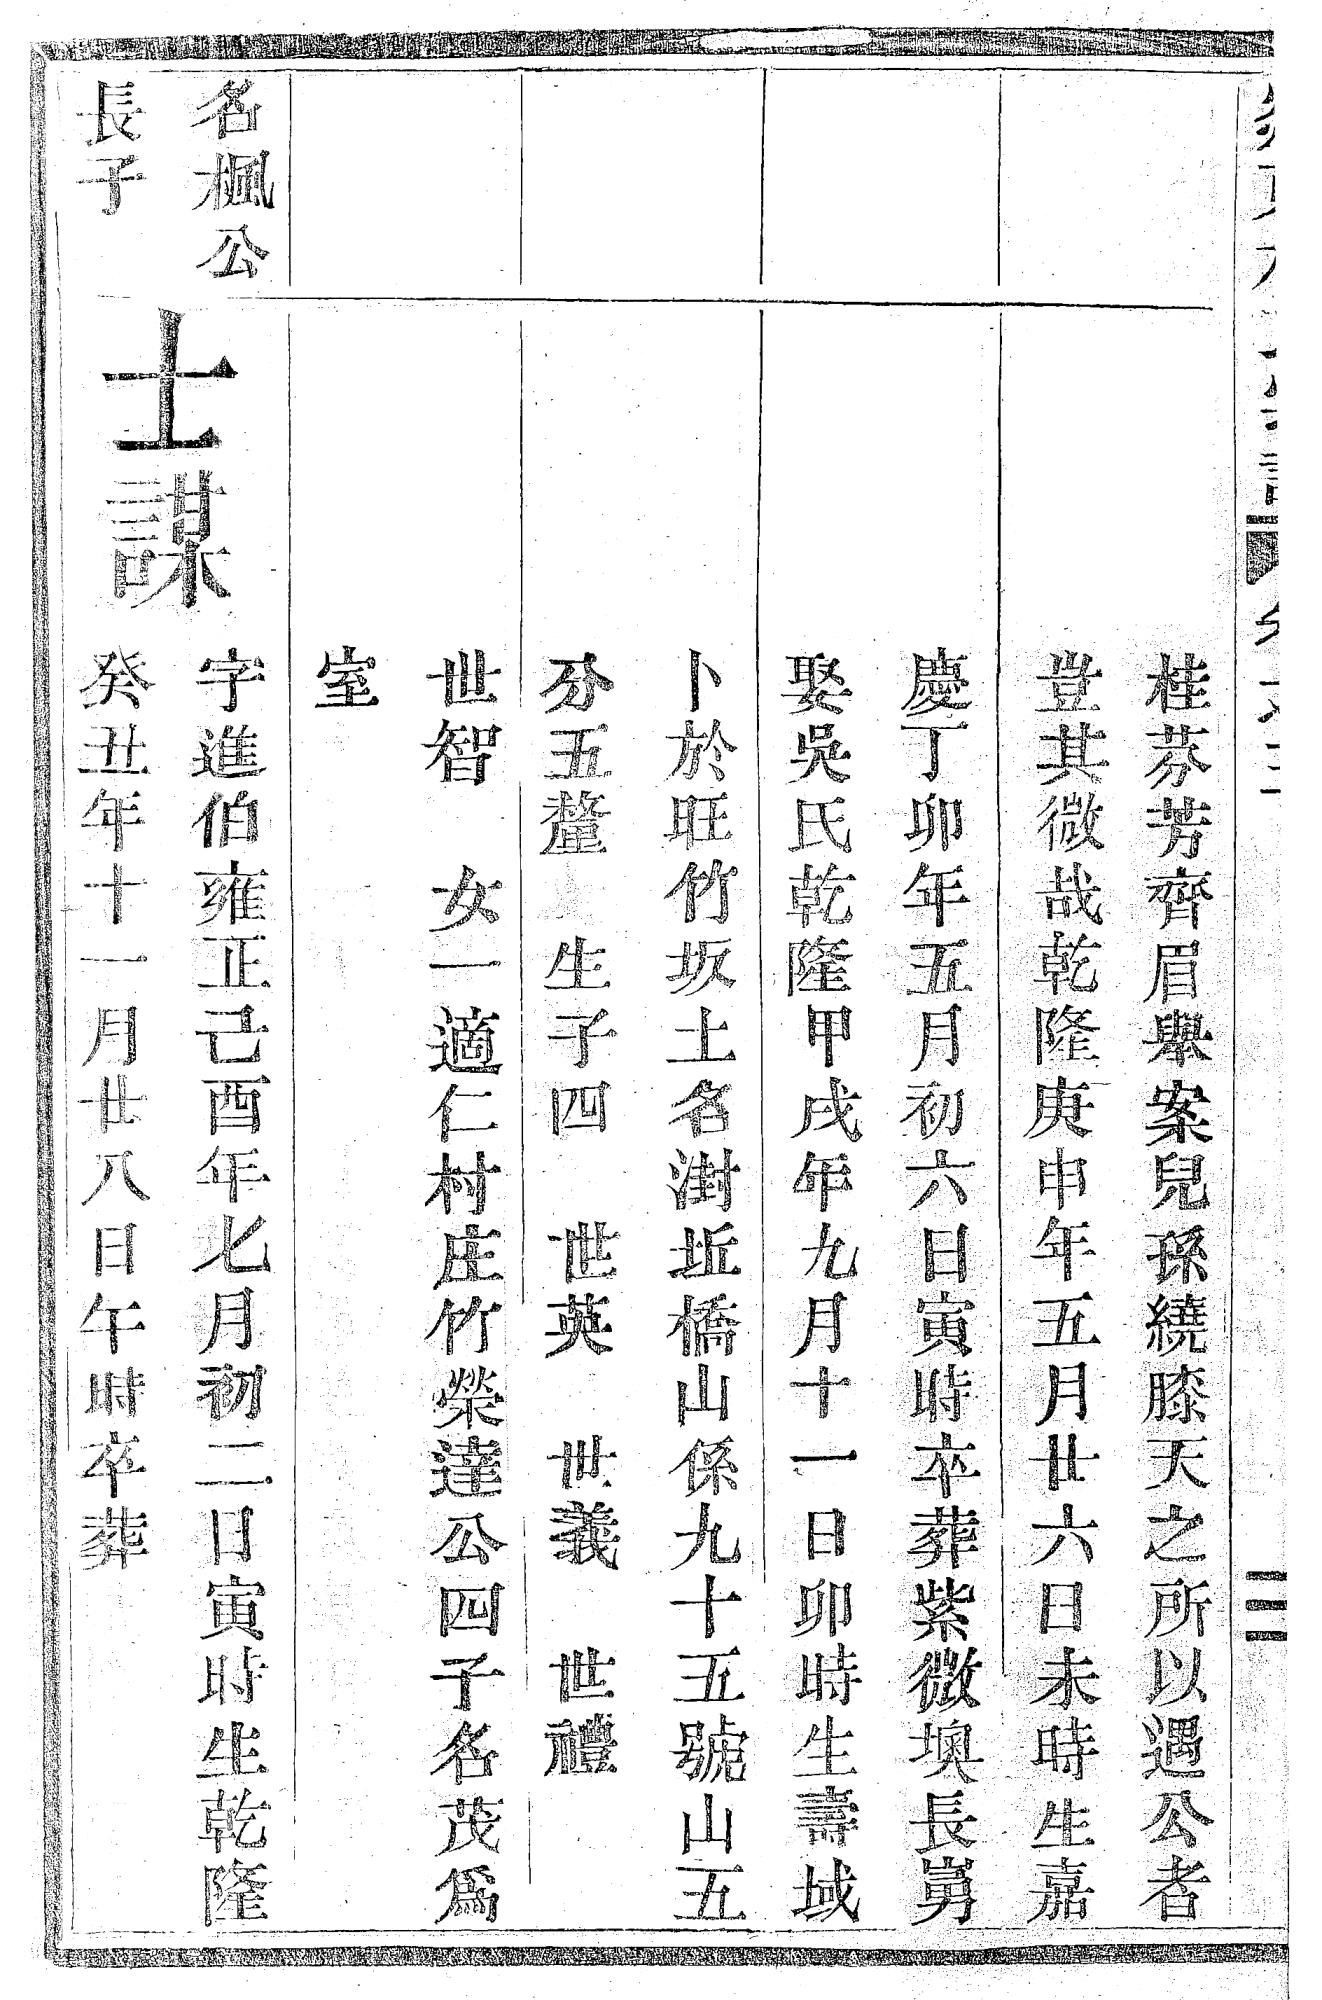 桂芬芳齊眉舉案兒孫繞膝天之所以遇公者
豈其微哉乾隆庚申年五月廿六日未時生嘉
慶丁卯年五月初六日寅時卒葬紫微墺長嶌
娶吳氏乾隆甲戌年九月十一日卯時生壽域
卜於旺竹坂土名澍坵橋山係九十五號山五
分五釐 生子四 世英 世義 世禮
世智 女一適仁村庄竹榮達公四子名茂爲
室
名楓公
長子
士謀
字進伯雍正己酉年七月初二日寅時生乾隆
癸丑年十一月廿八日午時卒葬
三